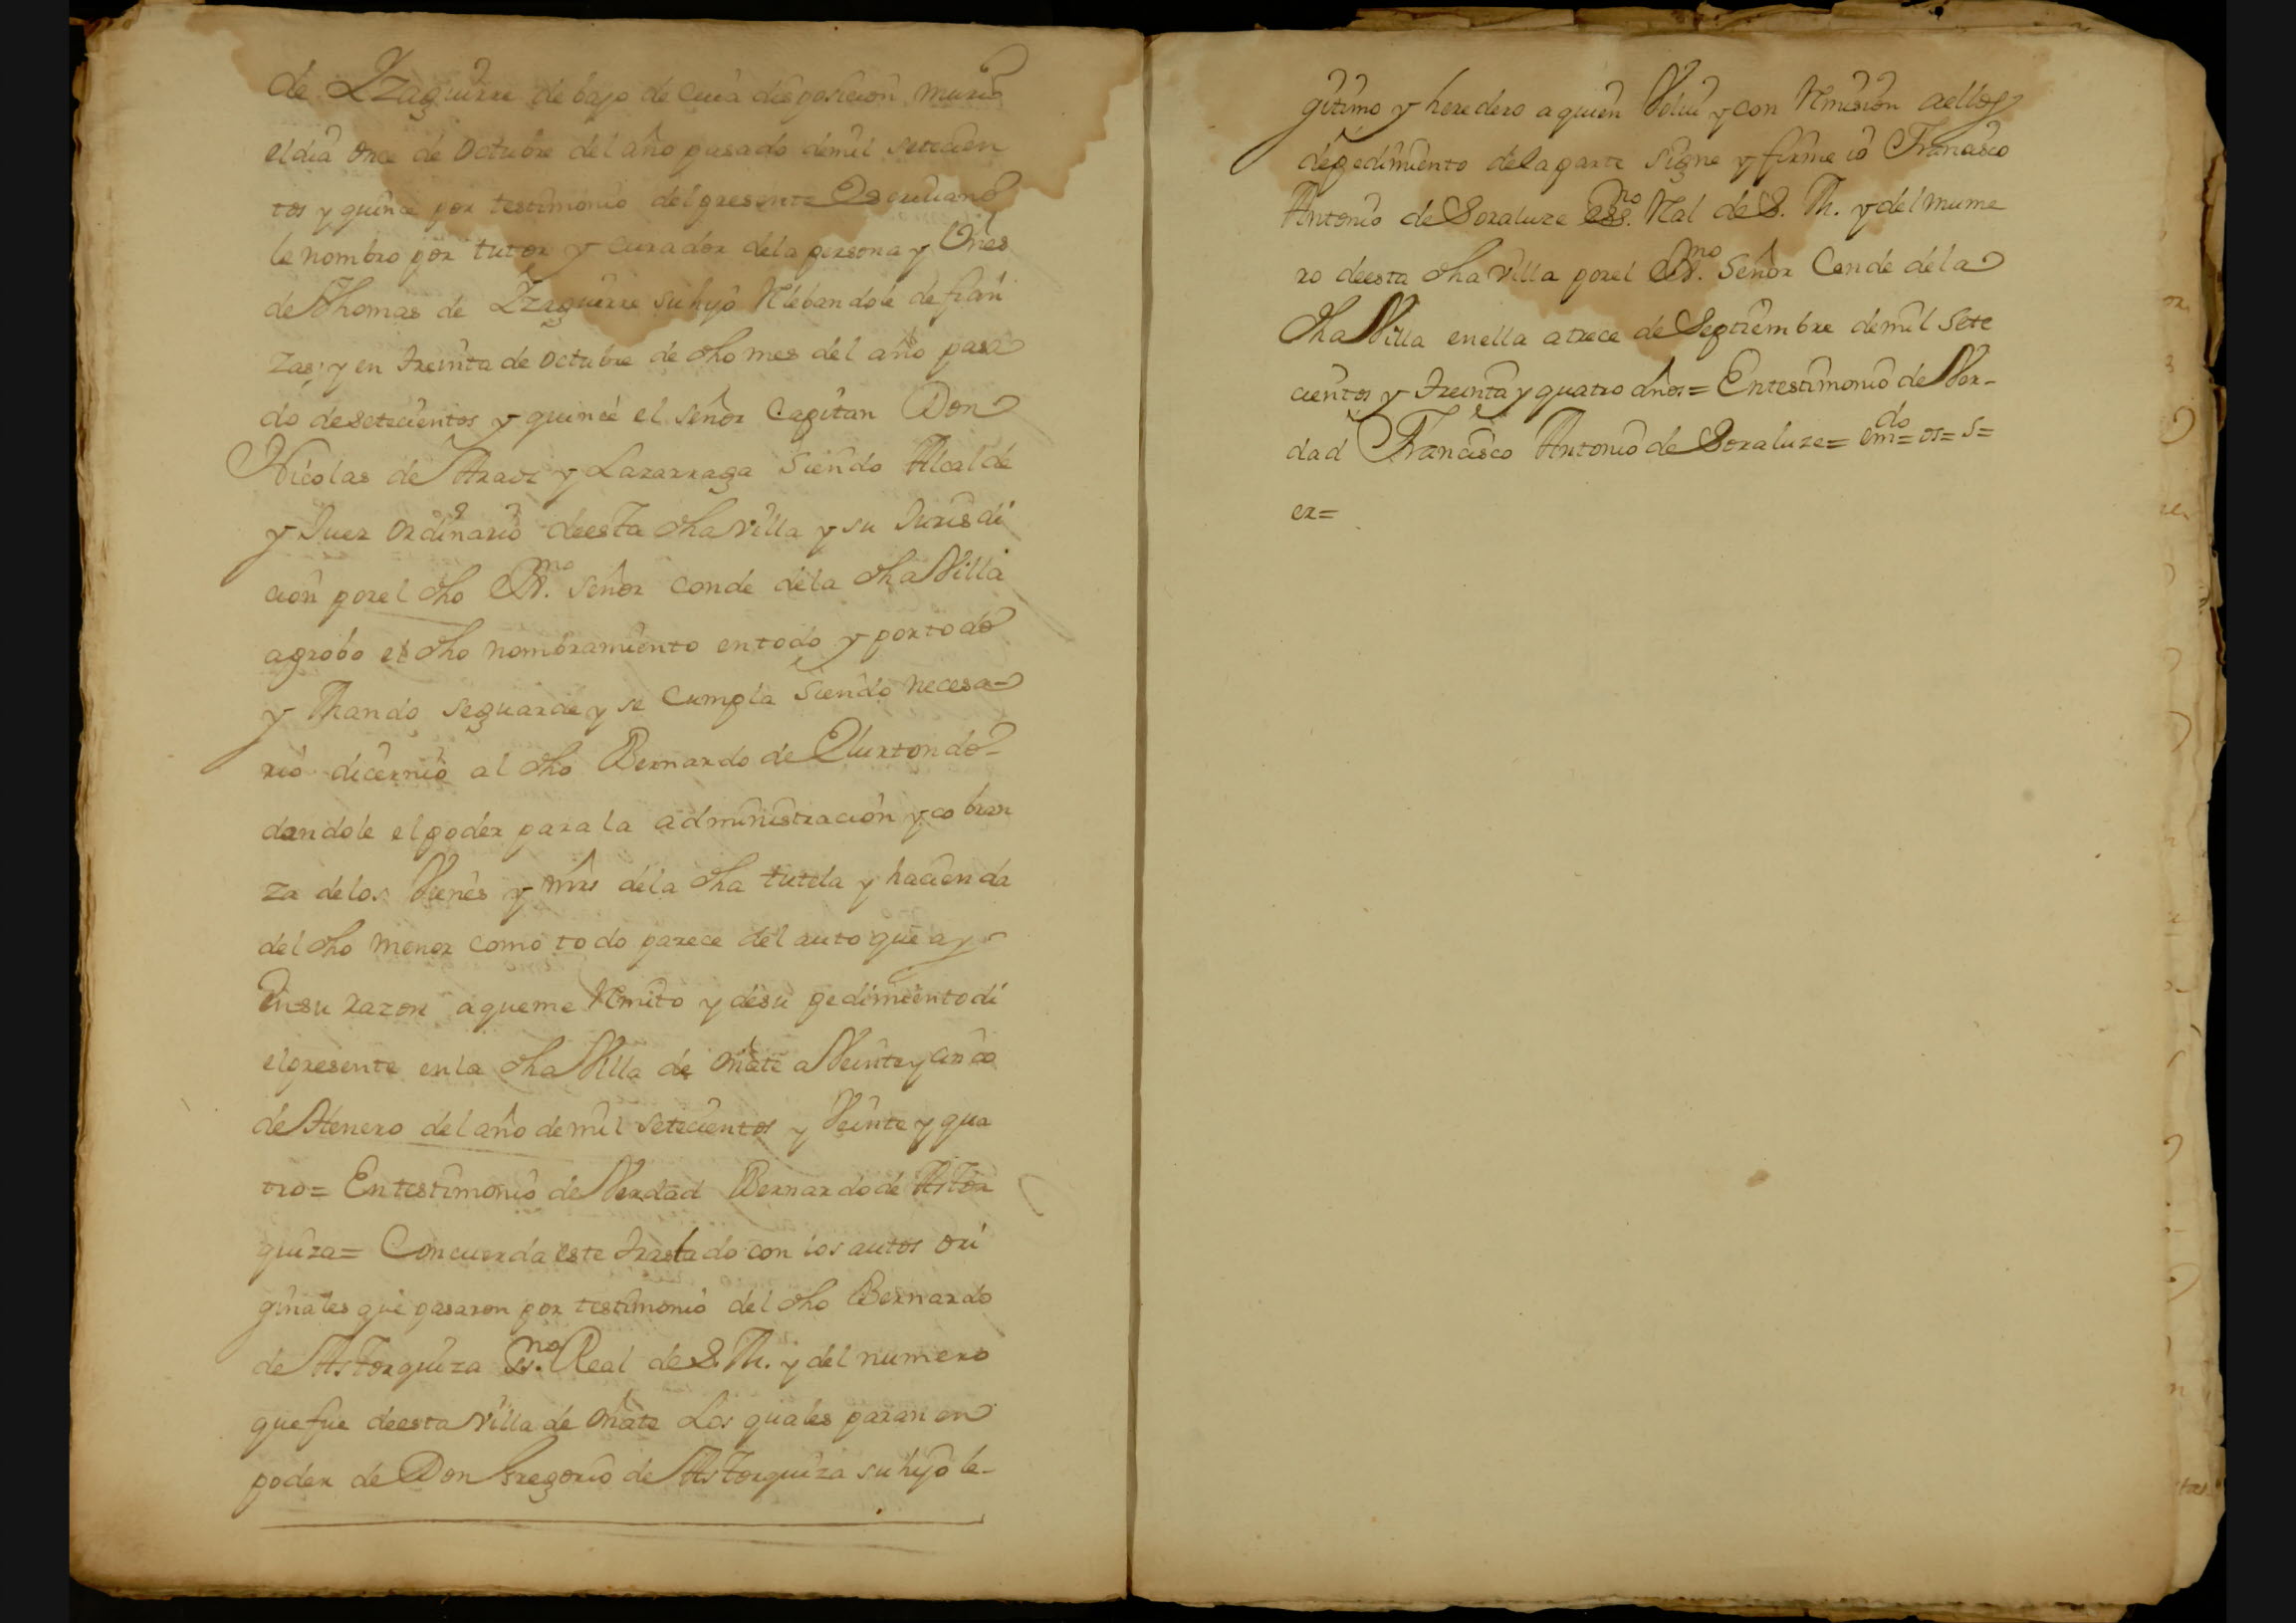 de Yzaguirre debajo de cuia disposicion murio
el dia once de octubre del año pasado de mil setecien
tos y quince por testimonio del presente Escriuano
le nombro por tutor y curador de la persona y Vnes
de Thomas de Yzaguirre su hijo Rlebandole de fian
zas; y en treinta de octubre de dho mes del año pasa
do de setecientos y quince el señor Capitan Don
Nicolas de Araoz y Lazarraga siendo Alcalde
y Juez ordinario de esta dha villa y su Jurisdi
cion por el dho Exmo. señor conde de la dha Villa
aprobo el dho nombramiento en todo y por todo
y Mando se guarde y se cumpla siendo necesa-
rio dicernio al dho Bernardo de Elurtondo-
dandole el poder para la administracion y cobran
za de los Vienes y mrs de la dha tutela y hacienda
del dho menor como todo parece del auto que ay
En su razon a que me Rmito y de su pedimiento di
el presente en la dha Villa de oñate a Veinte y cinco
de Henero del año de mil setecientos y Veinte y qua
tro= En testimonio de Verdad Bernardo de Astor
quiza= Concuerda este traslado con los autos ori
ginales que pasaron por testimonio del dho Bernardo
de Astorquiza ssno. Real de S. M. y del numero
que fue de esta villa de oñate Los quales paran en
poder de Don Gregorio de Astorquiza su hijo le-
gitimo y heredero a quien Volui y con Rmision a ellos
de pedimiento de la parte signe y firme io Francisco
Antonio de Soraluze essno. Ral de S. M. y del nume
ro de esta dha villa por el Exmo. Señor Conde de la
dha Villa en ella a trece de Septiembre de mil sete
cientos y treinta y quatro años= En testimonio de Ver-
dad Francisco Antonio de Soraluze= emdo= os= s=
er=